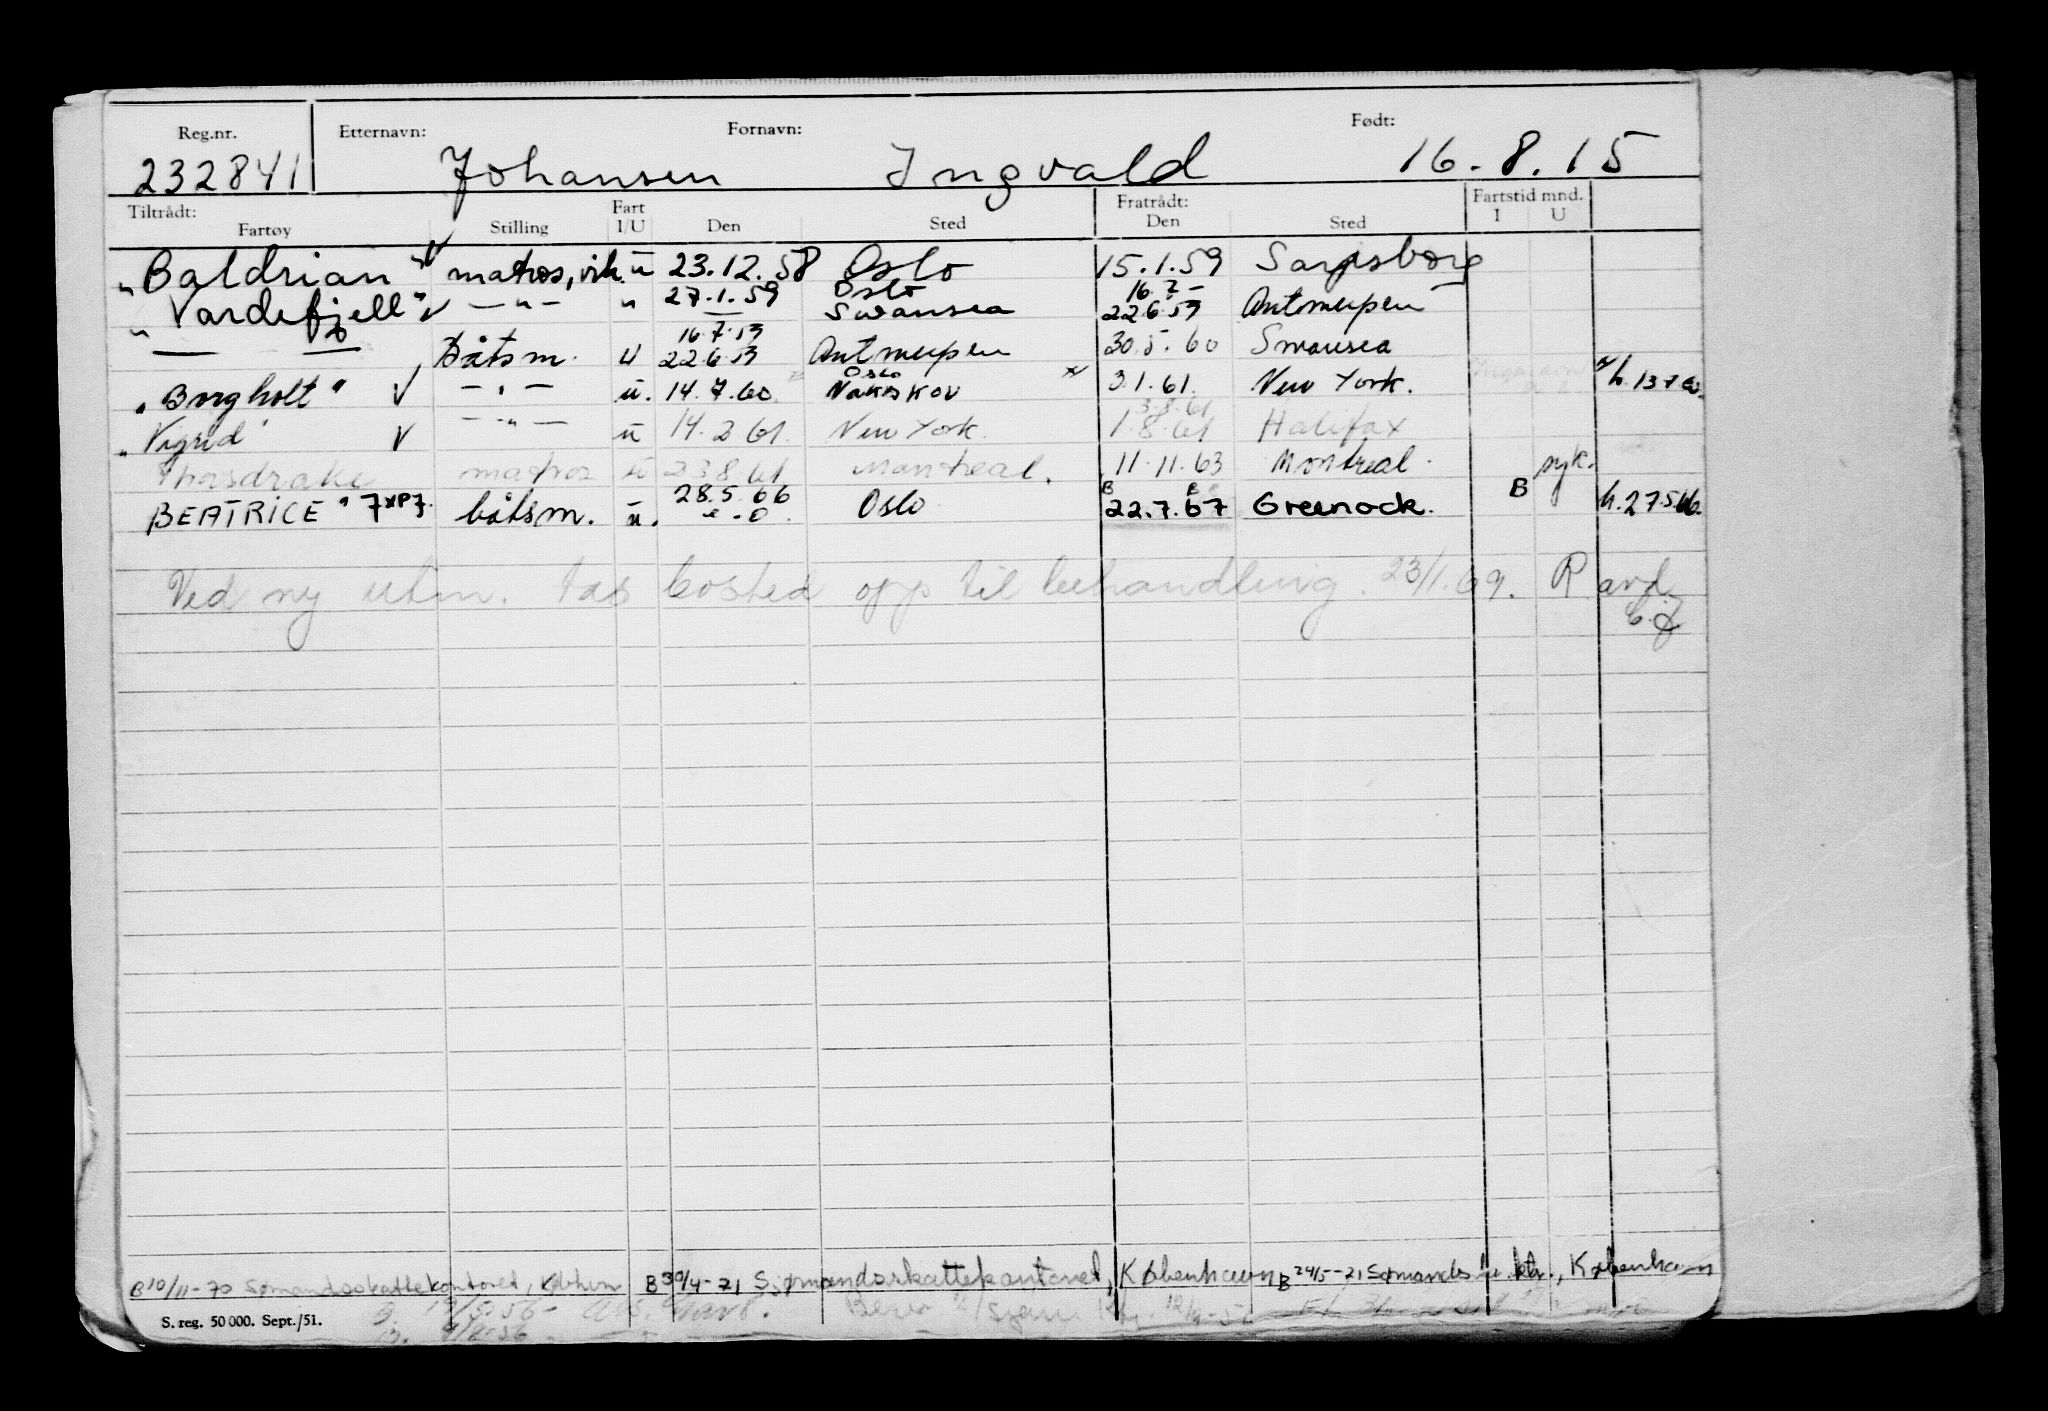 Reg.nr. Etternavn: Fornavn: Født:
232841 Johansen Ingvald 16.8.15
Tiltrådt: Fart Fratrådt: Fartstid mnd.
Fartøy Stilling I/U Den Sted Den Sted I U
"Baldrian" matros, vik. u 23.12.58 Oslo 15.1.59 Sarpsborg
27.1.59 Oslo 16.7 –
"Vardefjell" √ — " — " Swansea 22.6.59 Antwerpen
16.7.59
— — Båtsm. U 22.6.59 Antwerpen 30.5.60 Swansea
Oslo
"Borgholt" √ — " — u. 14.7.60 Nakskov 3.1.61. New York. h. 13760.
3.8.61
"Vigrid" √ — " — u 14.2.61. New York. 1.8.61 Halifax
Thorsdrake matros u 23.8.61 Montreal. 11.11.63 Montreal. syk.
28.5.66 B
BEATRICE" båtsm. u. Oslo 22.7.67 Greenock. B h.27566.
Ved ny utm. tas bosted opp til behandling. 23/1.69. R avd.
B 10/11-70 Sømandsskattekontoret, Kbhvn B 30/4-71 Sømandsskattekontoret, København B 24/5-71 Sømandssk. ktr., København
19/5.56
S. reg. 50 000. Sept./51.